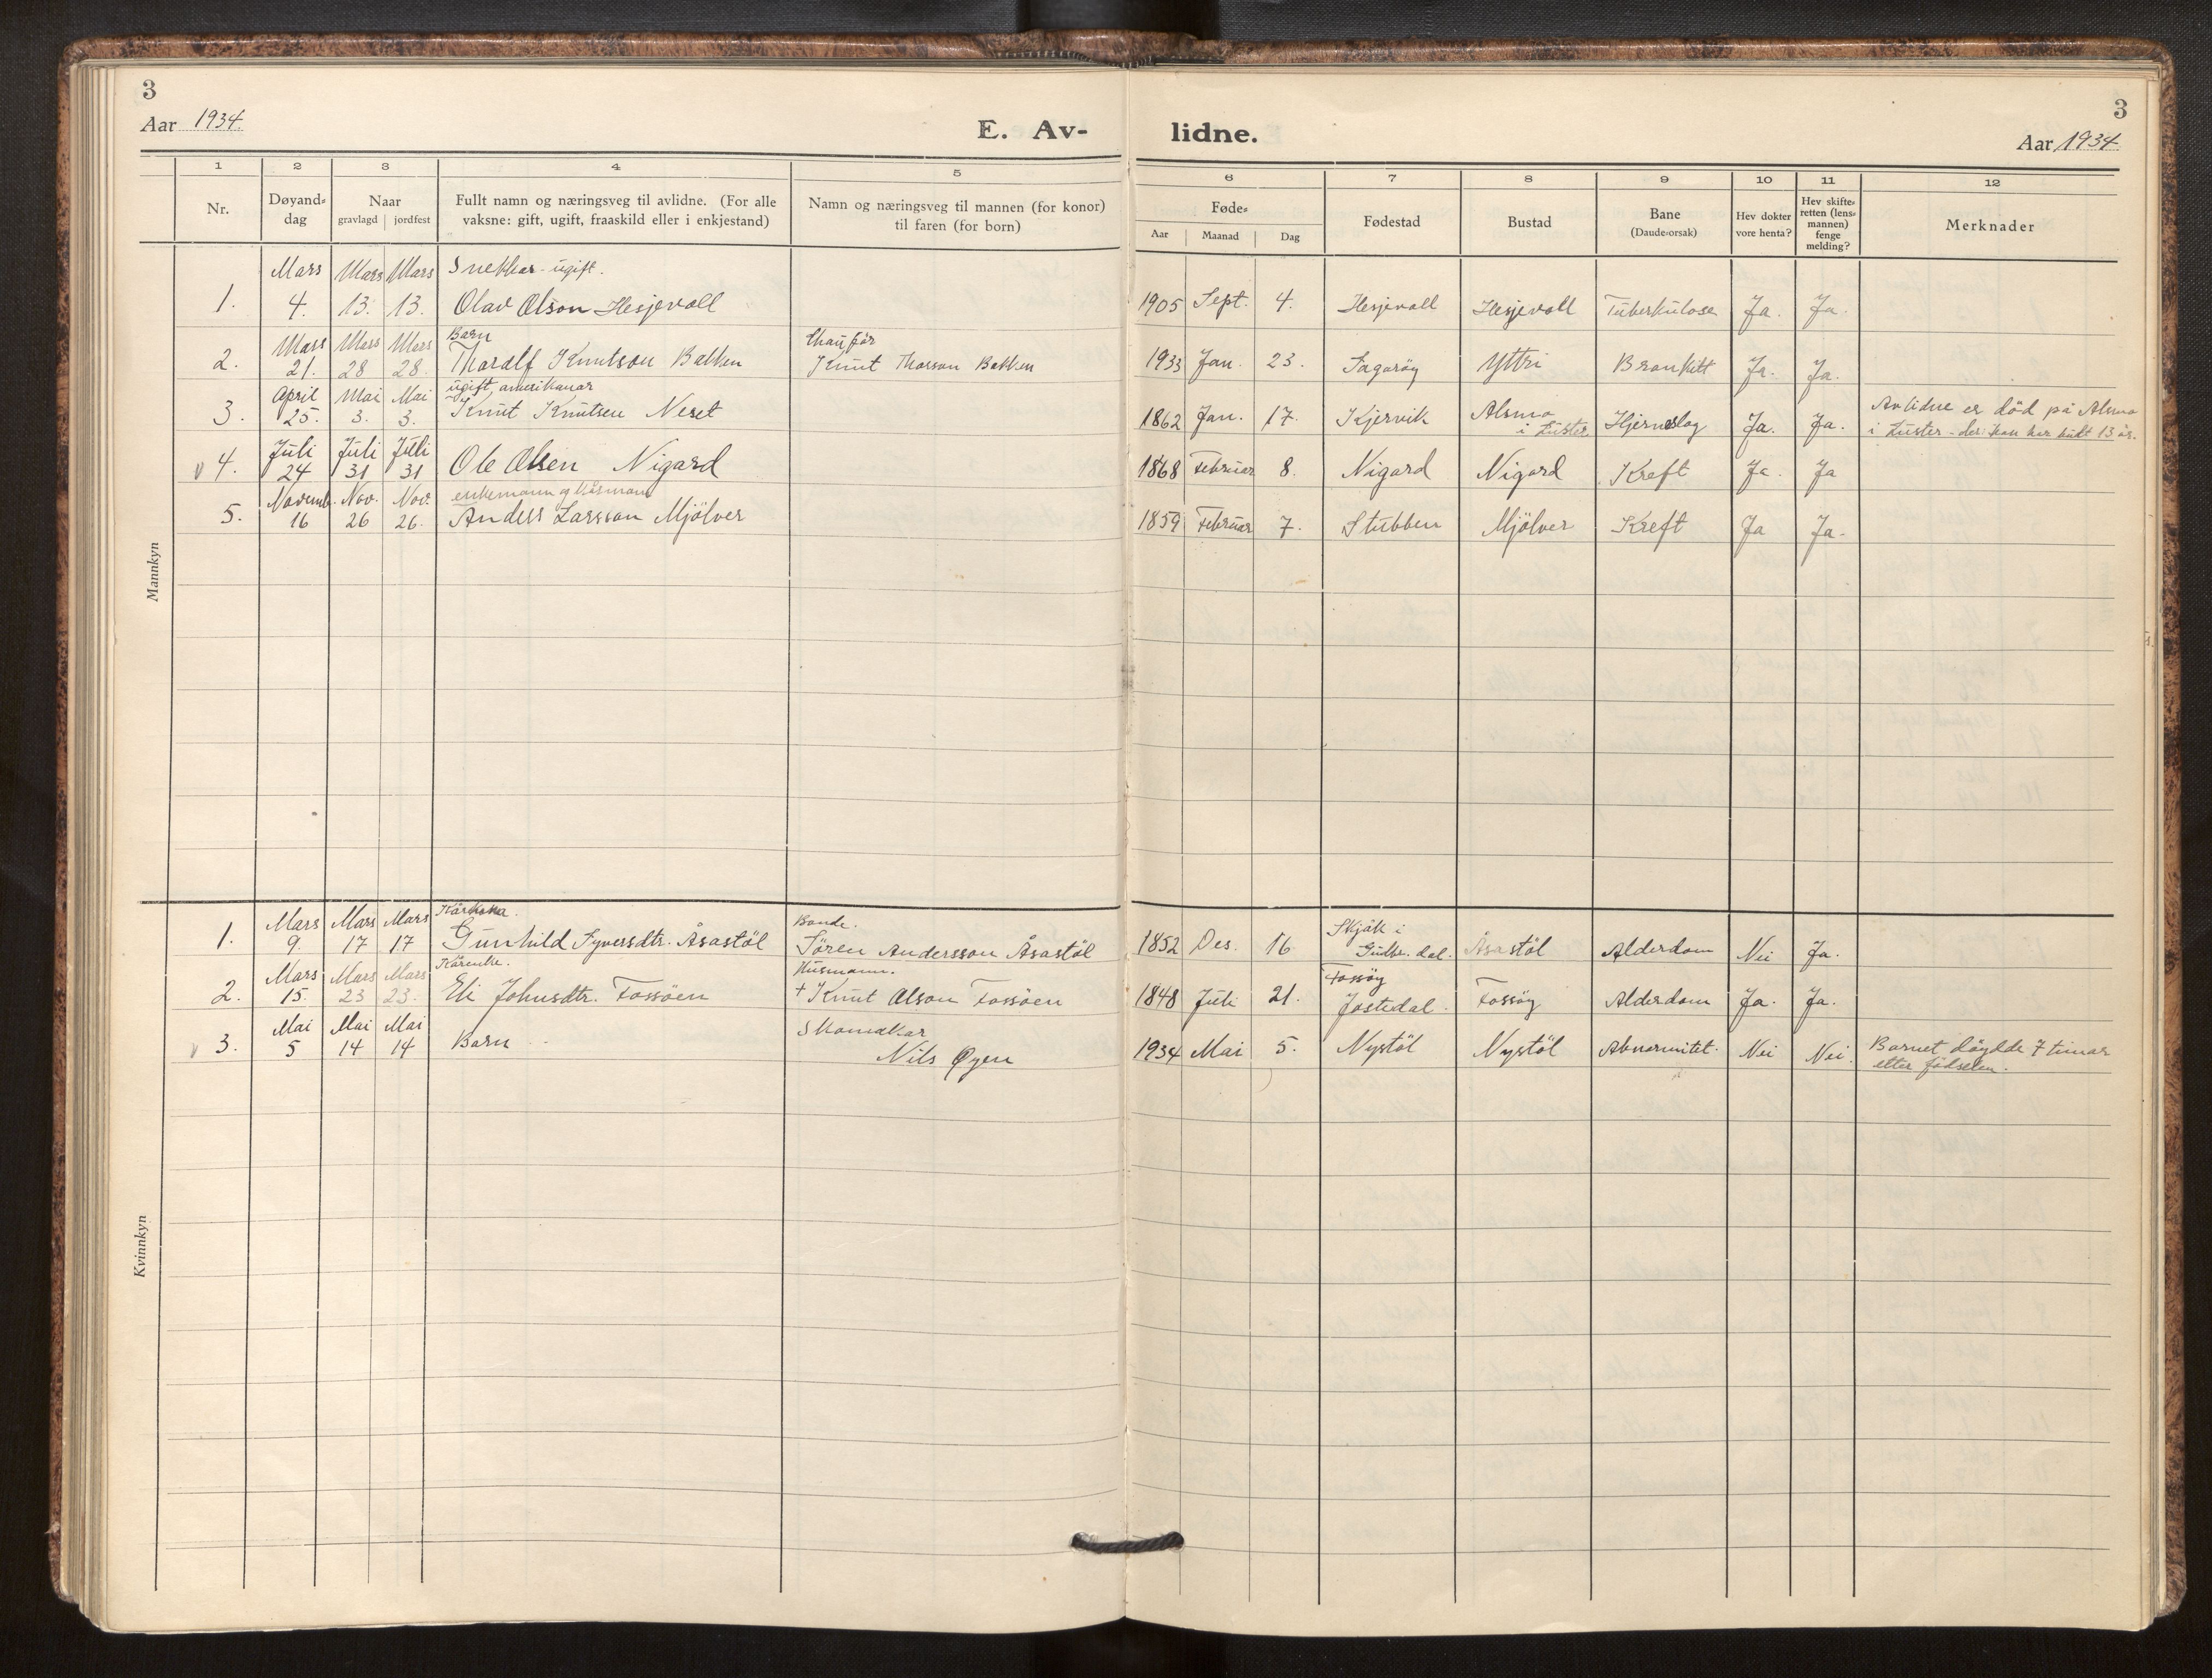 3
Aar 1934.
E. Av-
1 2 3 4 5
Nr.
Døyand-
dag
Naar
gravlagd jordfest
Fullt namn og næringsveg til avlidne. (For alle
vaksne: gift, ugift, fraaskild eller i enkjestand)
Namn og næringsveg til mannen (for konor)
til faren (for born)
Mannkyn
Mars Mars Mars Snekkar - ugift.
1. 4. 13. 13. Olav Olson Hesjevoll
Mars Mars Mars Barn Chauför
2. 21. 28 28. Thoralf Knutson Bakken Knut Thorson Bakken
April Mai Mai ugift amerikanar
3. 25. 3. 3. Knut Knutsen Neset
Juli Juli Juli
v 4. 24 31 31 Ole Olsen Nigard
Novemb. Nov. Nov. enkemann og husmann
5. 16 26 26. Anders Larsson Mjölver
Kvinnkyn
Mars Mars Mars Kårkona. Bonde.
1. 9. 17 17 Gunhild Syversdtr. Åsastöl Sören Andersson Åsastöl
Mars Mars Mars Kårenke. Husmann.
2. 15. 23 23. Eli Johnsdtr. Fossöen + Knut Olson Fossöen
Mai Mai Mai Skomakar
v 3. 5 14 14 Barn Nils Øyen
3
lidne.
Aar 1934
6 7 8 9 10 11 12
Føde-
Aar Maanad Dag
Fødestad
Bustad
Bane
(Daude-orsak)
Hev dokter
vore henta?
Hev skifte-
retten (lens-
mannen)
fenge
melding?
Merknader
1905 Sept. 4. Hesjevoll Hesjevoll Tuberkulose Ja. Ja.
1933 Jan. 23. Fagaröy Yttri Bronkitt Ja. Ja.
1862 Jan. 17. Kjervik Alsmo i Luster Hjerneslag Ja. Ja. Avlidne er död på Alsmo
i Luster - der han har butt 13 år.
1868 Februar 8. Nigard Nigard Kreft Ja. Ja
1859 Februar 7. Stubben Mjölver Kreft Ja Ja.
1852 Des. 16 Skjåk i Gudbr. dal. Åsastöl Alderdom Nei Ja.
1848 Juli 21. Fossöy Jostedal. Fossöy Alderdom Ja. Ja.
1934 Mai 5. Nystöl Nystöl Abnormitet. Nei Nei. Barnet döydde 7 timar
etter födselen.